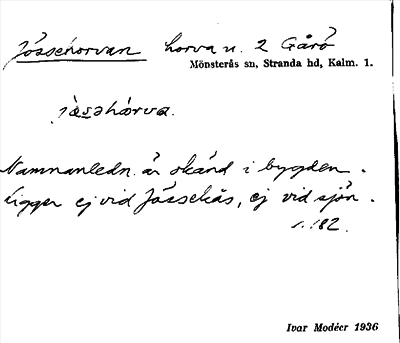 Jössehorvan horva u. 2 Gårö
Mönsterås sn, Stranda hd, Kalm. 1.
jösəhórva.
Namnanledn. är okänd i bygden.
Ligger ej vid Jössekås, ej vid sjön.
s. 182.
Ivar Modéer 1936